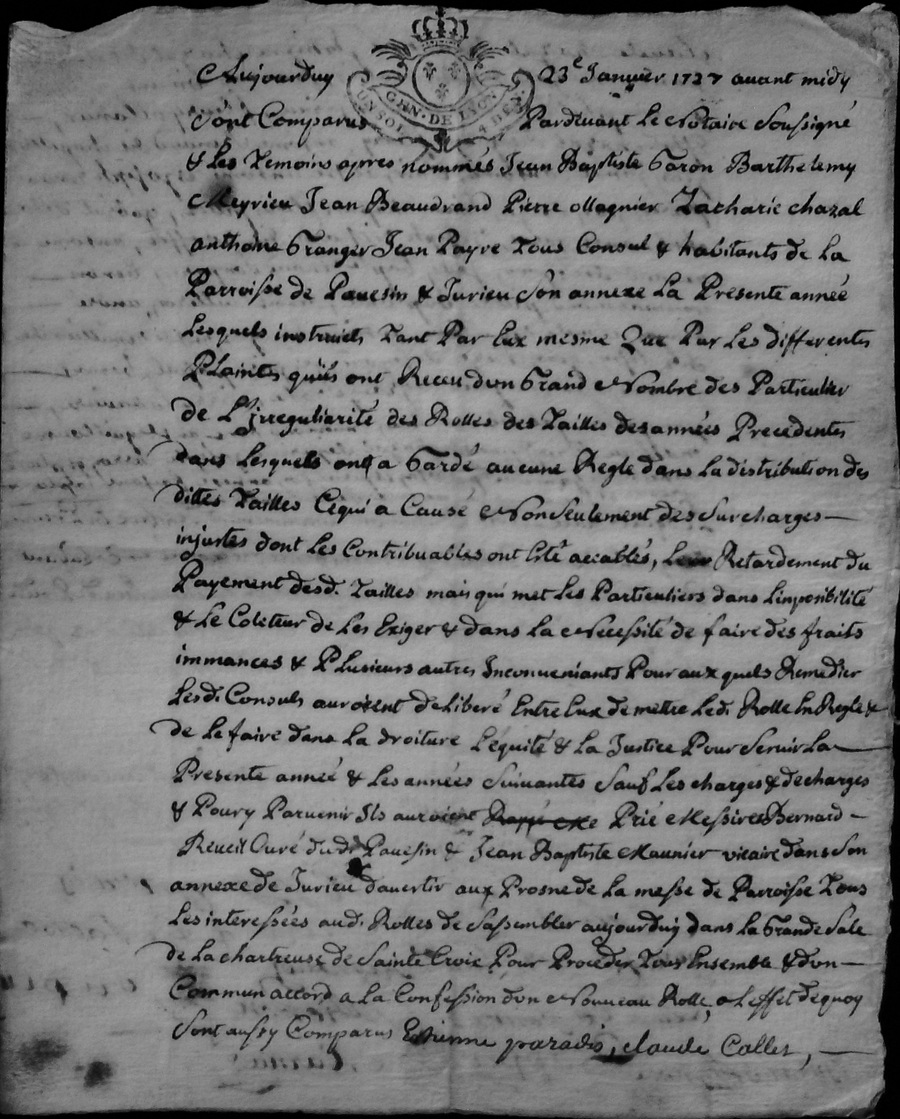 Aujourduy 23e Janvier 1727 avant midy
GEN. DE LYON
UN SOL 4 DEN.
Sont Comparus Pardevant Le Notaire Soussigné
& Les Temoins apres nommés Jean Baptiste Garon Barthelemy
Meyrieu Jean Beaudrand Pierre Magnier Zacharie chazal
anthoine Granger Jean Payre Tous Consul & habitants de La
Parroisse de Pavesin & Jurieu Son annexe La Presente année
Lesquels instruits Tant Par Eux mesme Que Par Les differentes
Plaintes quils ont Receu dun Grand Nombre des Particulier
de L'jrreguliarité des Rolles des Tailles des années Precedentes
dans Lesquels ont a Gardé aucune Regle dans La distribution des
dittes Tailles Cequi a Causé Non Seulement des Surcharges —
injustes dont Les Contribuables ont Eté accablés, Le Retardement du
Payement desd. Tailles mais qui met Les Particuliers dans Linposibilité
& Le Coleteur de Les Exiger & dans La Necessité de faire des fraits
immances & Plusieurs autres Inconveniants Pour aux quels Remedier
Lesd. Consuls auroient deLiberé Entre Eux de mettre Led. Rolle En Regle &
de Le faire dans La droiture L'equité & La Justice Pour Servir La —
Presente année & Les années Suivantes Sauf Les charges & decharges
& Poury Parvenir Ils auroient Prié Messires Bernard —
Reveil Curé dud. Pavesin & Jean Baptiste Maunier vicaire dans Son
annexe de Jurieu davertir aux Prosne de La messe de Parroisse Tous
Les interessées aud. Rolles de Sassembler aujourduy dans La Grande Sale
de La chartreuse de Sainte Croix Pour Proceder Tous Ensemble & dun —
Commun accord a La Confession dun Nouveau Rolle, a Leffet dequoy
Sont aussy Comparus Estienne paradis, claude Collet, —